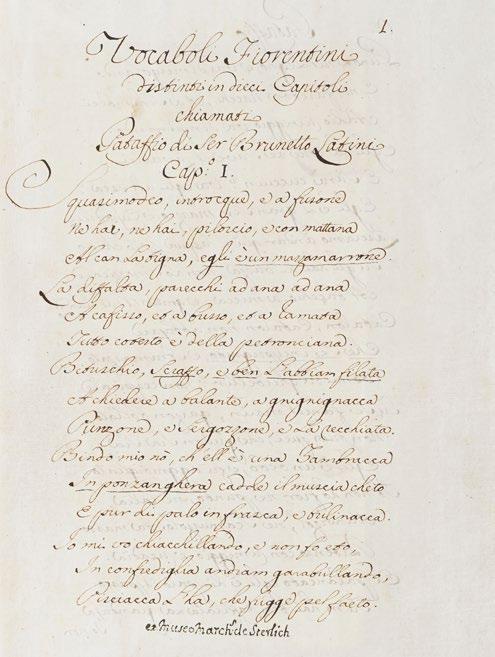 1.
Vocaboli Fiorentini
distinti in dieci Capitoli
chiamati
Pataffio di Ser Brunetto Latini
Cap.º I.
Squasimodeo, introcque, e a fusone
Ne hai, ne hai, pilorcio, e con mattana
Al can la tigna, egli è un mazzamarrone.
La difalta, parecchi ad ana ad ana
A cafisso, et a busso, et a ramata
Tutto cotesto è della petronciana.
Bituschio, sciaffo, e ben l'abbiam filata
A chiedere a balante, a gnignignacca
Punzone, e sergozzone, e la recchiata.
Bindo mio nò, ch'ell'è una Zambracca
In ponzanghera cadde il muscia cheto
E pur di palo in frasca, e bulinacca.
Io mi vo chiacchillando, e non fo eto,
In confrediglia andiam garabullando,
Pisciacca l'ha, che fugge pel faeto.
ex Museo March.s de Sterlich